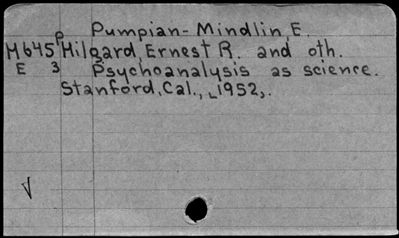 Pumpian-Mindlin, E.
M645p Hilgard, Ernest R. and oth.
E 3 Psychoanalysis as science.
Stanford, Cal., [1952].